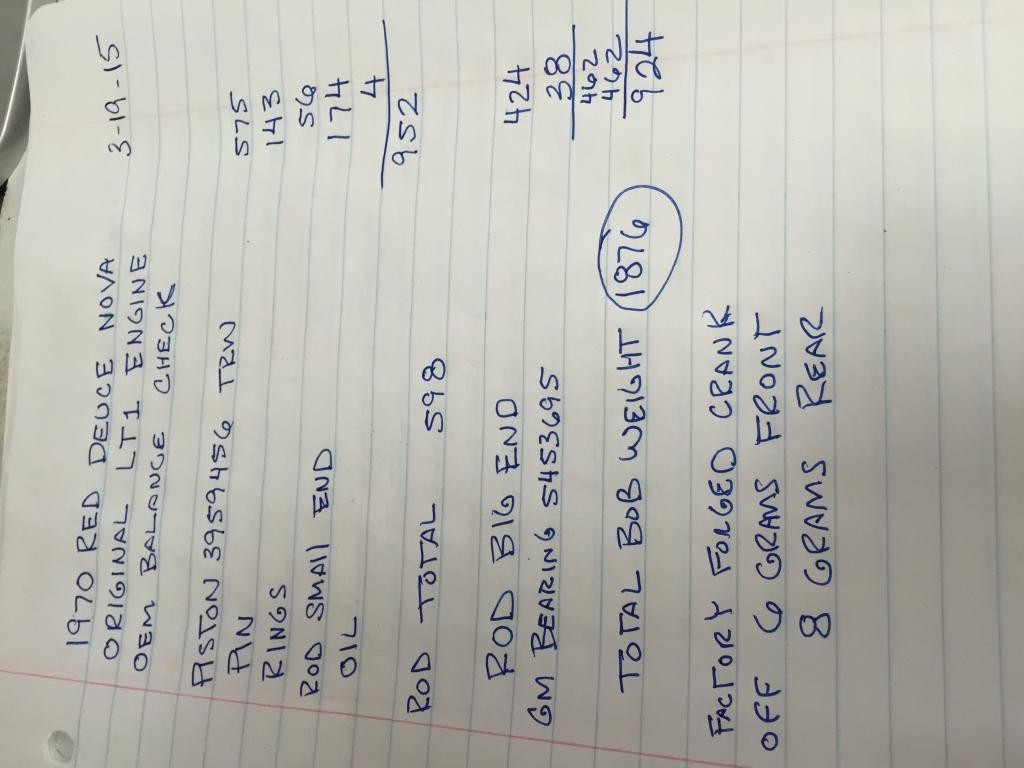 1970 RED DEUCE NOVA 3-19-15
ORIGINAL LT1 ENGINE
OEM BALANCE CHECK
PISTON 3959456 TRW 575
PIN 143
RINGS 56
ROD SMAll END 174
OIL 4
952
ROD TOTAL 598
ROD BIG END 424
GM BEARING 5453695 38
462
462
TOTAL BOB WEIGHT 1876 924
FACTORY FORGED CRANK
OFF 6 GRAMS FRONT
8 GRAMS REAR